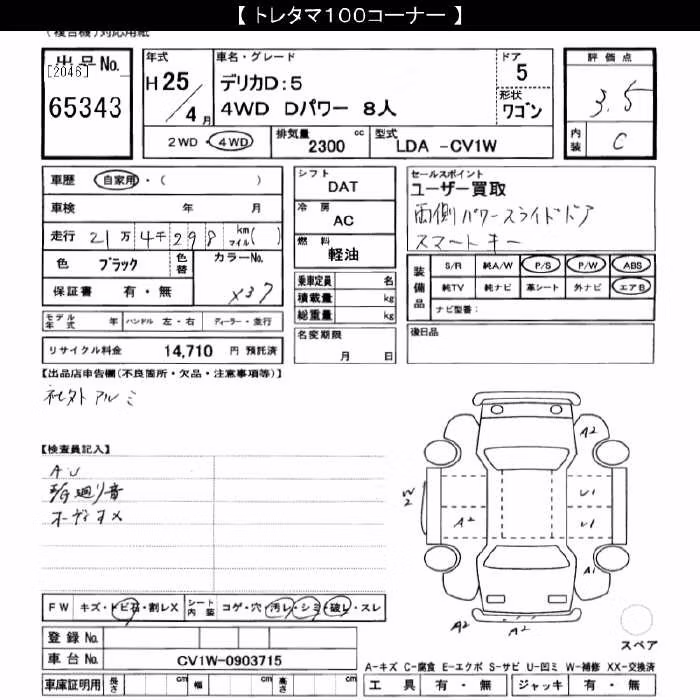 【 トレタマ100コーナー 】
(複合機)対応用紙
出品No.
[2046]
65343
年式
H 25 / 4 月
車名・グレード
デリカD:5
4WD Dパワー 8人
ドア
5
形状
ワゴン
2WD・4WD
排気量 2300 cc
型式 LDA -CV1W
評価点
3.5
内装 C
車歴 自家用・( )
車検 年 月
走行 21万4千298 km マイル( )
色 ブラック 色替 カラーNo.
X37
保証書 有・無
モデル年式 年 ハンドル 左・右 ディーラー・並行
リサイクル料金 14,710 円 預託済
シフト
DAT
冷房
AC
燃料
軽油
乗車定員 名
積載量 kg
総重量 kg
名変期限
月 日
セールスポイント
ユーザー買取
両側パワースライドドア
スマートキー
装備品
S/R 純A/W P/S P/W ABS
純TV 純ナビ 革シート 外ナビ エアB
ナビ型番:
後日品
【出品店申告欄(不良箇所・欠品・注意事項等)】
社外アルミ
【検査員記入】
AU
廻り音
オーディオメ
A2
W2
A2
U1
U1
A1
A2
A2
FW キズ・トビ石・割レX シート内装 コゲ・穴・汚レ・シミ・破レ・スレ
登録No.
車台No. CV1W-0903715
車庫証明用 長さ cm 幅 cm 高さ cm
スペア
A-キズ C-腐食 E-エクボ S-サビ U-凹ミ W-補修 XX-交換済
工具 有・無 ジャッキ 有・無